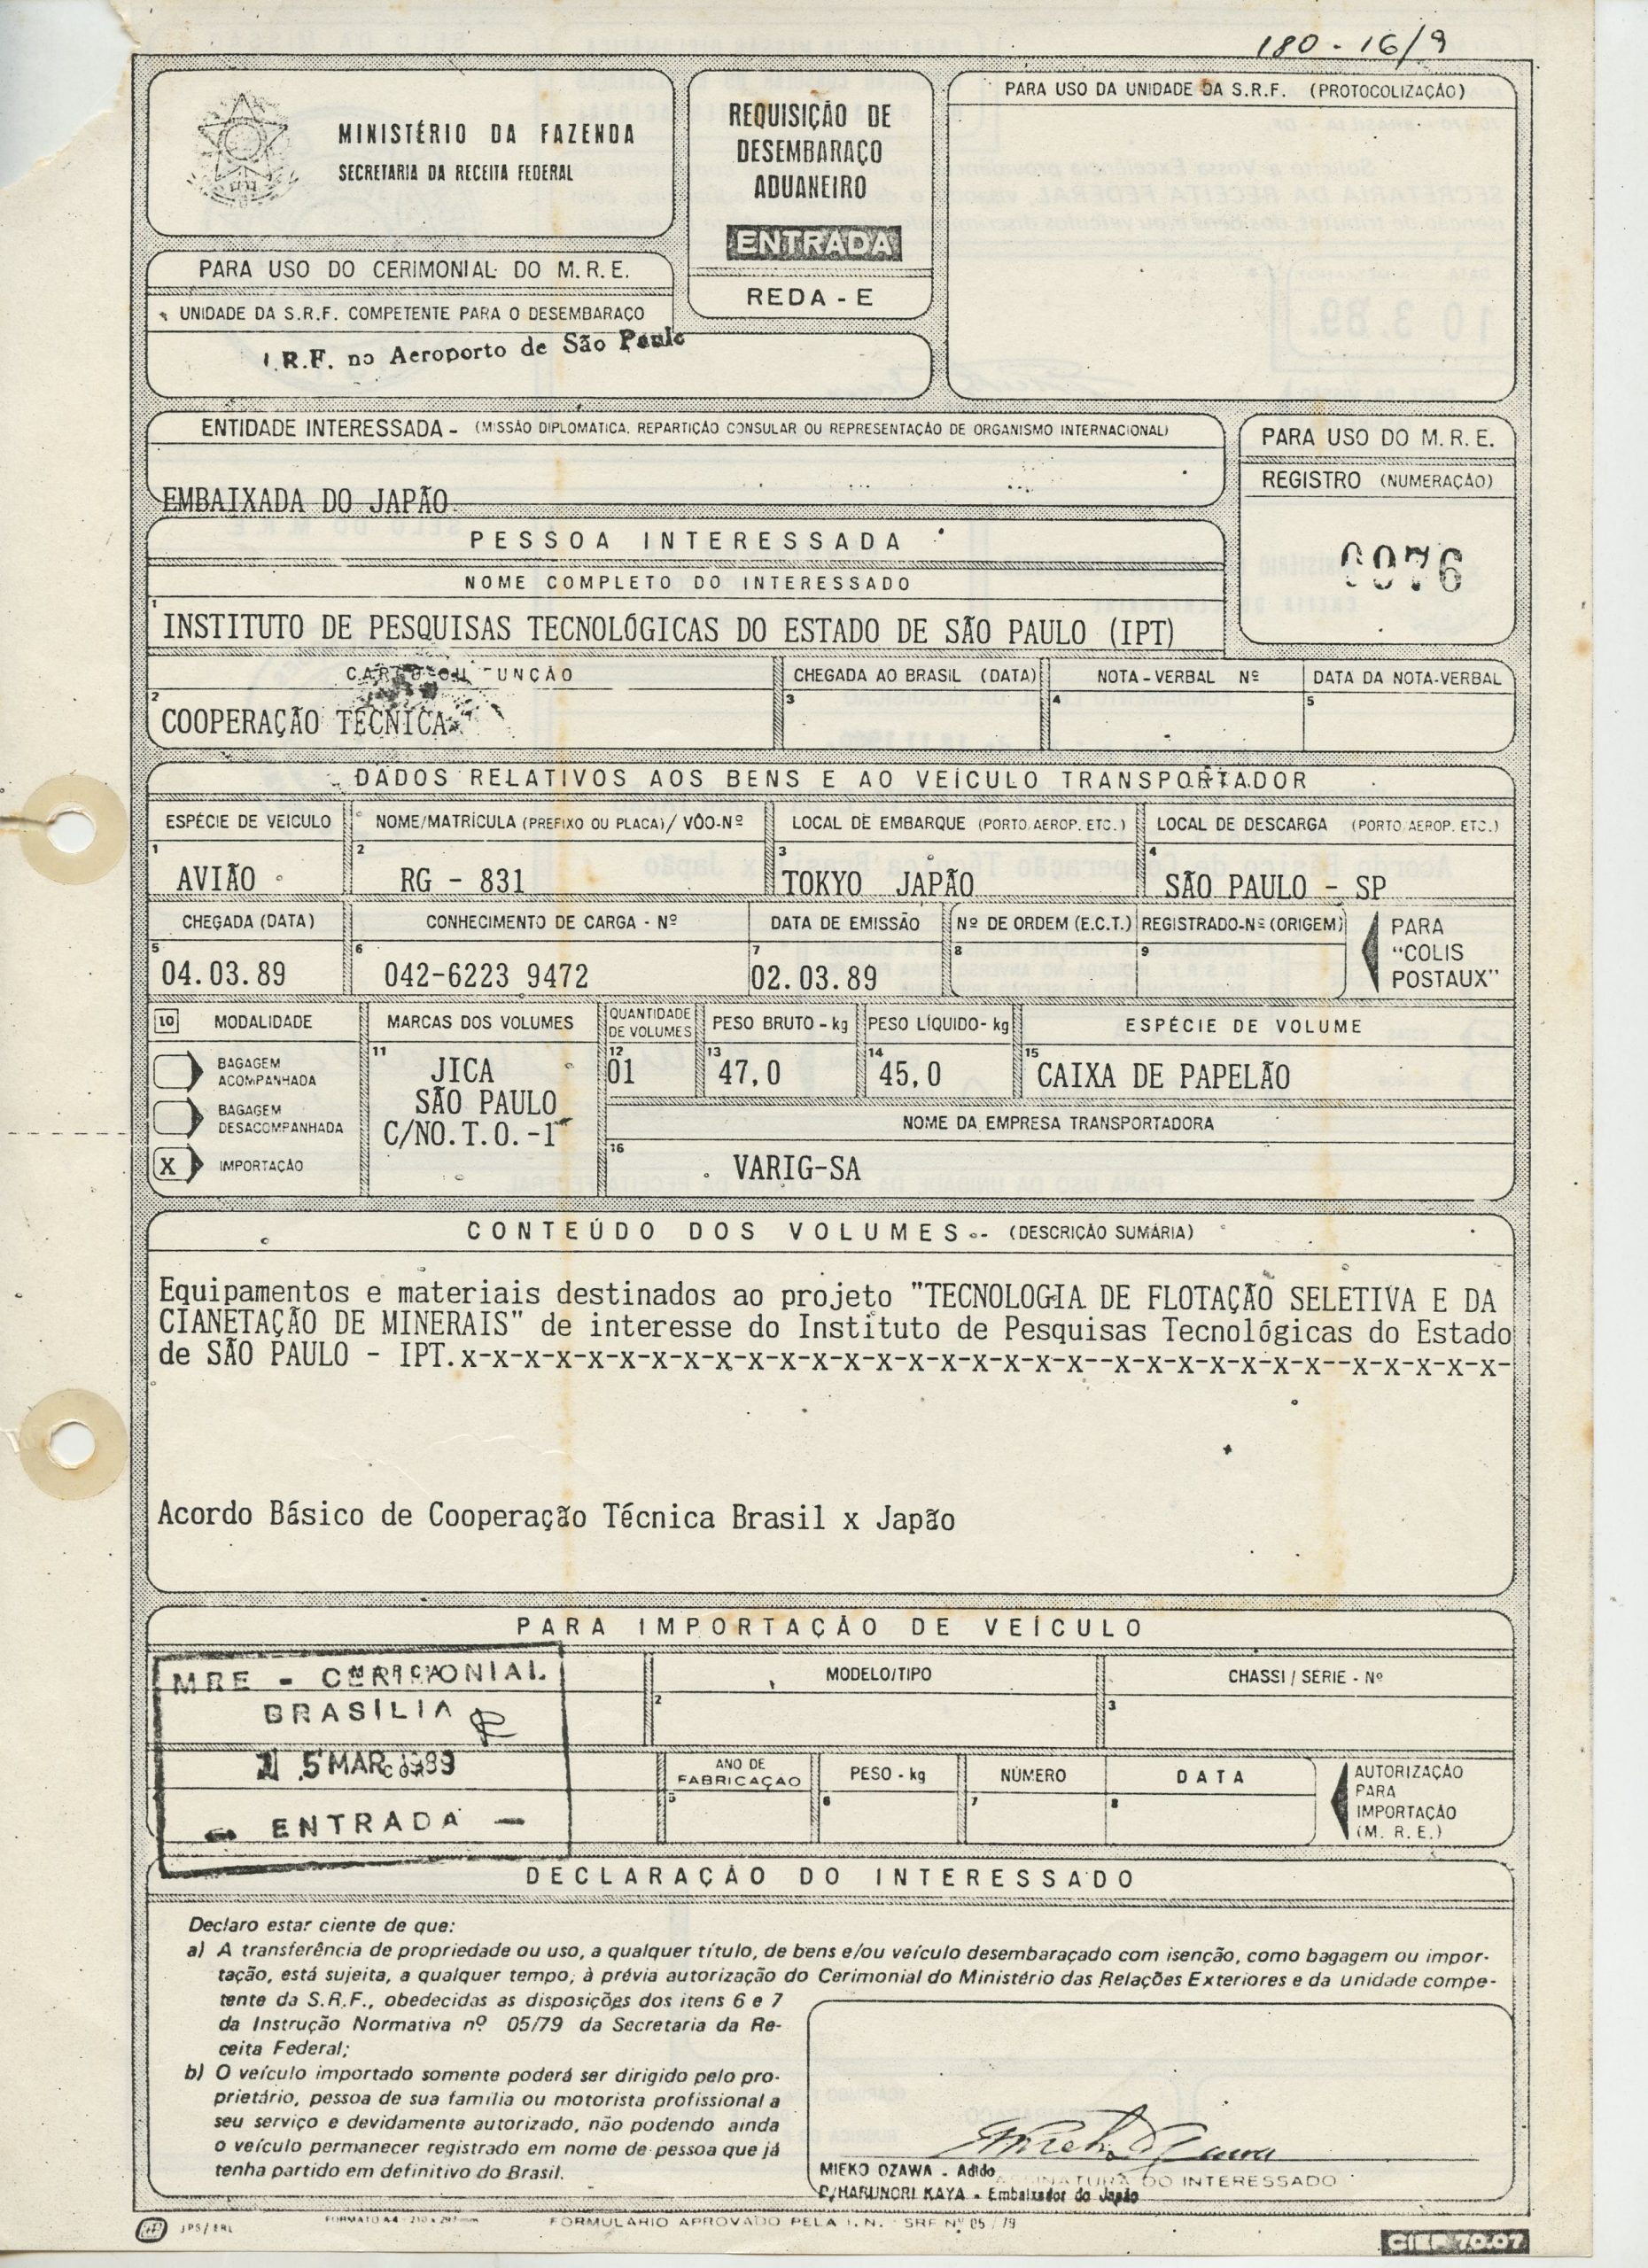 180 - 16/9
MINISTÉRIO DA FAZENDA
SECRETARIA DA RECEITA FEDERAL
REQUISIÇÃO DE
DESEMBARAÇO
ADUANEIRO
ENTRADA
REDA - E
PARA USO DA UNIDADE DA S.R.F. (PROTOCOLIZAÇÃO)
PARA USO DO CERIMONIAL DO M.R.E.
UNIDADE DA S.R.F. COMPETENTE PARA O DESEMBARAÇO
I.R.F. no Aeroporto de São Paulo
ENTIDADE INTERESSADA - (MISSÃO DIPLOMATICA, REPARTIÇÃO CONSULAR OU REPRESENTAÇÃO DE ORGANISMO INTERNACIONAL)
EMBAIXADA DO JAPÃO
PARA USO DO M.R.E.
REGISTRO (NUMERAÇÃO)
0976
PESSOA INTERESSADA
NOME COMPLETO DO INTERESSADO
1
INSTITUTO DE PESQUISAS TECNOLÓGICAS DO ESTADO DE SÃO PAULO (IPT)
CARGO OU FUNÇÃO CHEGADA AO BRASIL (DATA) NOTA-VERBAL Nº DATA DA NOTA-VERBAL
2 3 4 5
COOPERAÇÃO TECNICA
DADOS RELATIVOS AOS BENS E AO VEÍCULO TRANSPORTADOR
ESPÉCIE DE VEICULO NOME/MATRÍCULA (PREFIXO OU PLACA)/ VÔO-Nº LOCAL DE EMBARQUE (PORTO, AEROP. ETC.) LOCAL DE DESCARGA (PORTO, AEROP. ETC.)
1 2 3 4
AVIÃO RG - 831 TOKYO JAPÃO SÃO PAULO - SP
CHEGADA (DATA) CONHECIMENTO DE CARGA - Nº DATA DE EMISSÃO Nº DE ORDEM (E.C.T.) REGISTRADO-Nº (ORIGEM)
PARA
"COLIS
POSTAUX"
5 6 7 8 9
04.03.89 042-6223 9472 02.03.89
10 MODALIDADE MARCAS DOS VOLUMES QUANTIDADE DE VOLUMES PESO BRUTO - kg PESO LÍQUIDO- kg ESPÉCIE DE VOLUME
BAGAGEM
ACOMPANHADA
BAGAGEM
DESACOMPANHADA
X IMPORTAÇÃO
11
JICA
SÃO PAULO
C/NO.T.O.-1
12 13 14 15
01 47,0 45,0 CAIXA DE PAPELÃO
NOME DA EMPRESA TRANSPORTADORA
16
VARIG-SA
CONTEÚDO DOS VOLUMES - (DESCRIÇÃO SUMÁRIA)
Equipamentos e materiais destinados ao projeto "TECNOLOGIA DE FLOTAÇÃO SELETIVA E DA
CIANETAÇÃO DE MINERAIS" de interesse do Instituto de Pesquisas Tecnológicas do Estado
de SÃO PAULO - IPT.x-x-x-x-x-x-x-x-x-x-x-x-x-x-x-x-x-x-x-x--x-x-x-x-x-x-x-x--x-x-x-x-x-
Acordo Básico de Cooperação Técnica Brasil x Japão
PARA IMPORTAÇÃO DE VEÍCULO
MODELO/TIPO CHASSI / SERIE - Nº
2 3
MRE - CERIMONIAL
BRASILIA
15 MAR 1989
- ENTRADA -
ANO DE
FABRICAÇÃO PESO - kg NÚMERO DATA
5 6 7 8
AUTORIZAÇÃO
PARA
IMPORTAÇÃO
(M. R. E.)
DECLARAÇÃO DO INTERESSADO
Declaro estar ciente de que:
a) A transferência de propriedade ou uso, a qualquer título, de bens e/ou veículo desembaraçado com isenção, como bagagem ou impor-
tação, está sujeita, a qualquer tempo, à prévia autorização do Cerimonial do Ministério das Relações Exteriores e da unidade compe-
tente da S.R.F., obedecidas as disposições dos itens 6 e 7
da Instrução Normativa nº 05/79 da Secretaria da Re-
ceita Federal;
b) O veículo importado somente poderá ser dirigido pelo pro-
prietário, pessoa de sua família ou motorista profissional a
seu serviço e devidamente autorizado, não podendo ainda
o veículo permanecer registrado em nome de pessoa que já
tenha partido em definitivo do Brasil.
MIEKO OZAWA - Adido
ASSINATURA DO INTERESSADO
P/HARUNORI KAYA - Embaixador do Japão
JPS/ERL FORMATO A4 - 210 x 297mm FORMULÁRIO APROVADO PELA I.N. - SRF Nº 05/79
CIEF 70.07